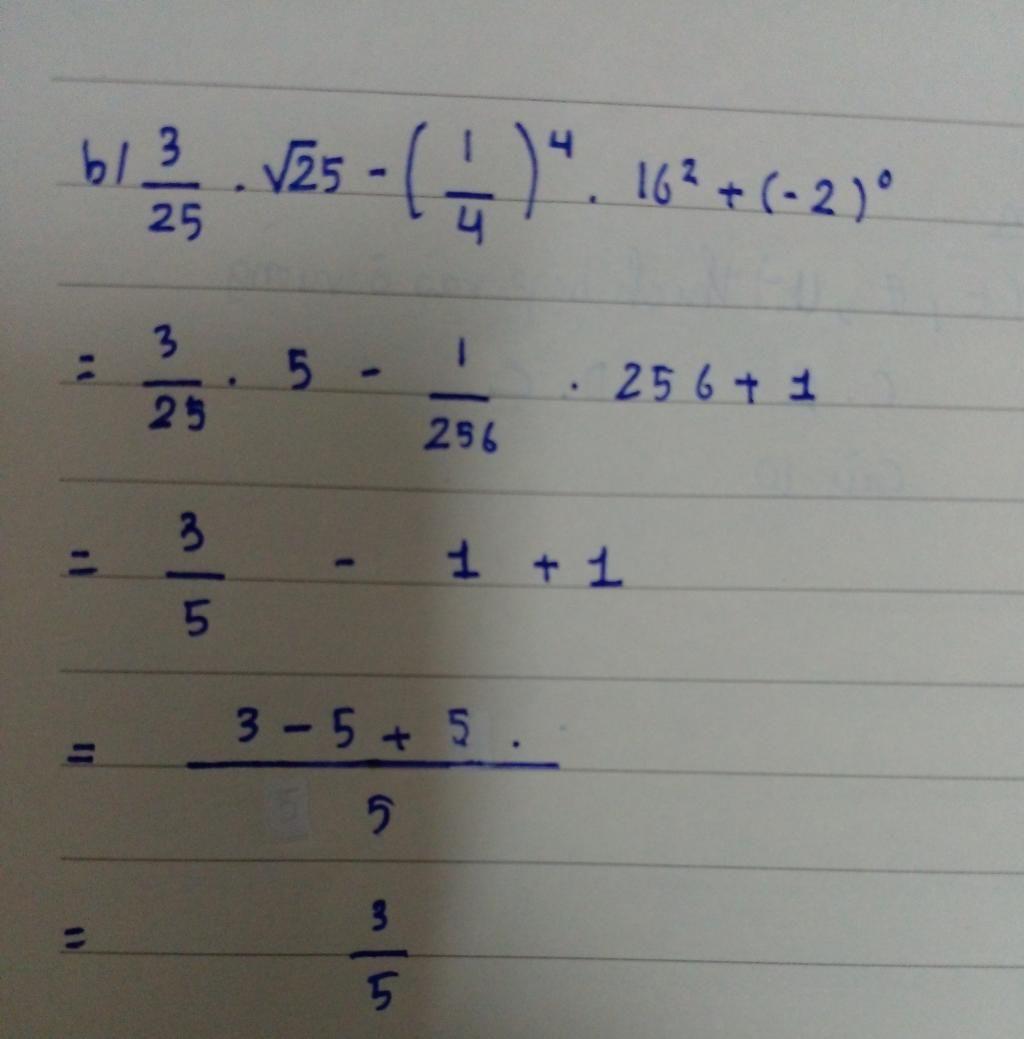 b) 3/25 . √25 - (1/4)⁴ . 16² + (-2)⁰
= 3/25 . 5 - 1/256 . 256 + 1
= 3/5 - 1 + 1
= (3 - 5 + 5)/5
= 3/5